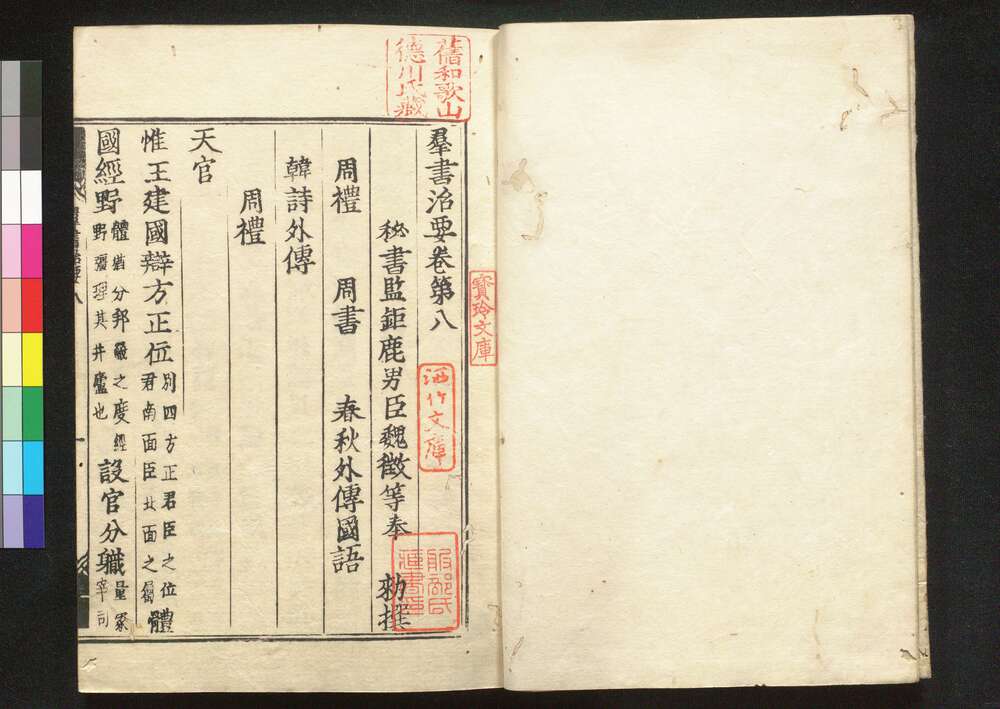 舊和歌山
德川氏藏
羣書治要卷第八
秘書監鉅鹿男臣魏徵等奉 勑撰
周禮 周書 春秋外傳國語
韓詩外傳
周禮
天官
惟王建國辯方正位別四方正君臣之位君南面臣北面之屬體
國經野體猶分郭之度經野疆理其井廬也設官分職量冢宰司
寶玲文庫
洒竹文庫
服部氏